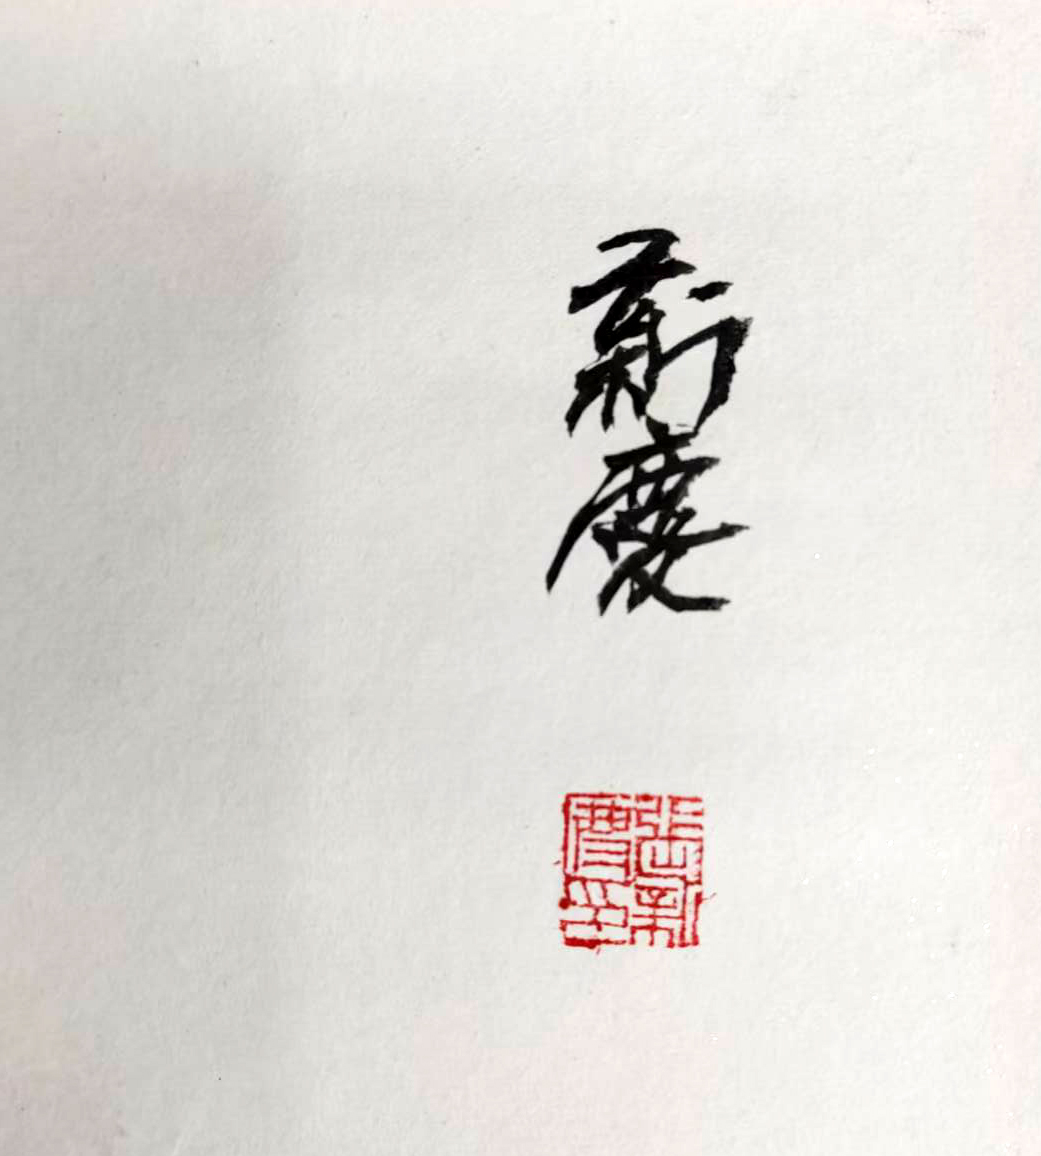 新慶
張新慶印